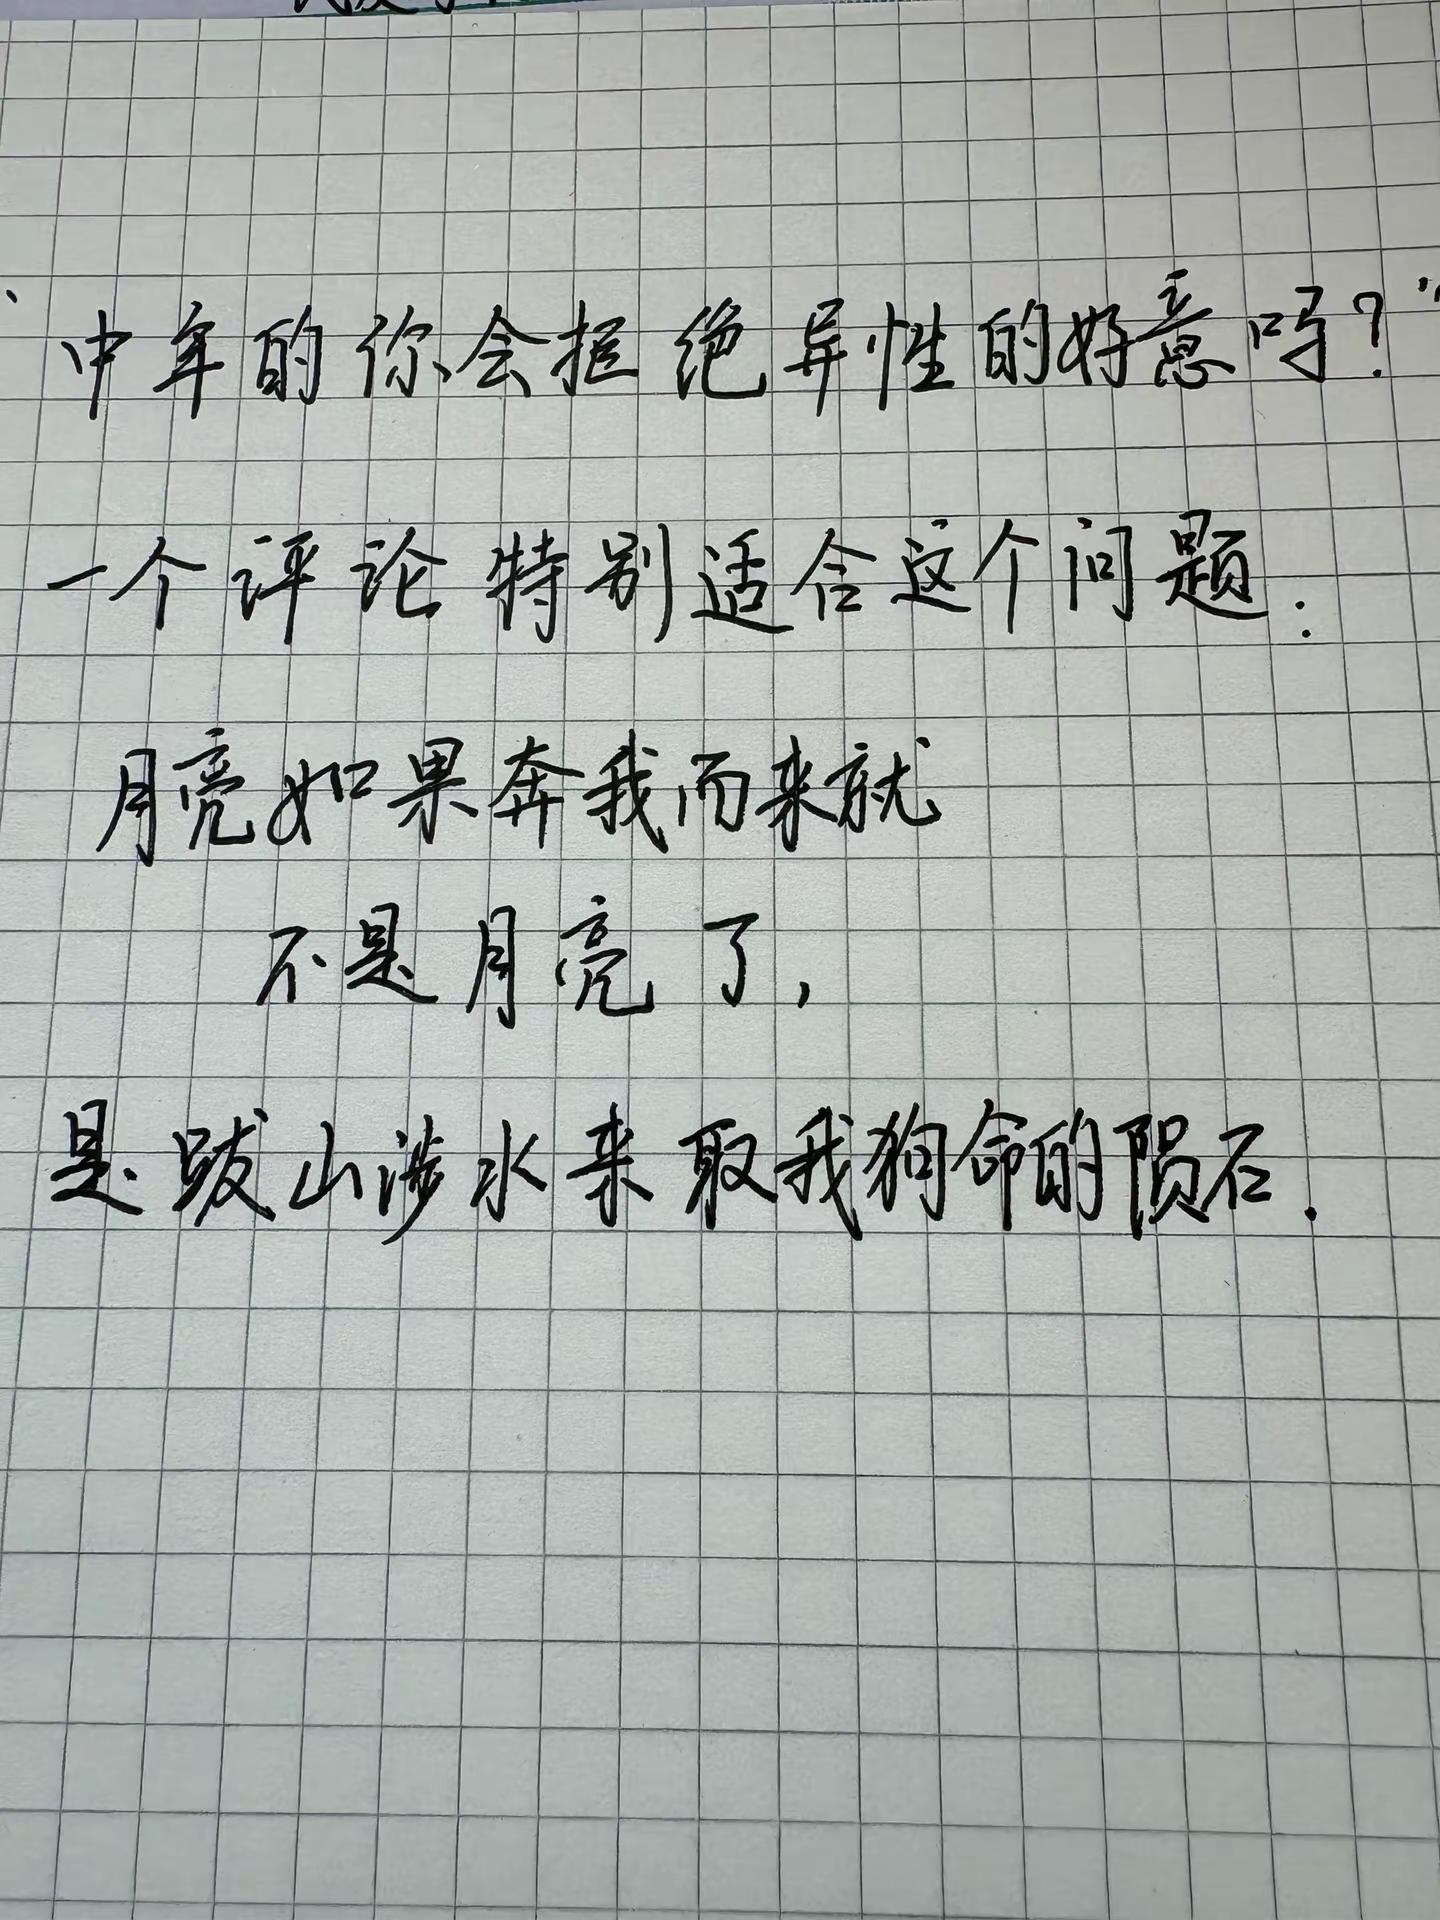 “中年的你会拒绝异性的好意吗？”
一个评论特别适合这个问题：
月亮如果奔我而来就
不是月亮了，
是跋山涉水来取我狗命的陨石.